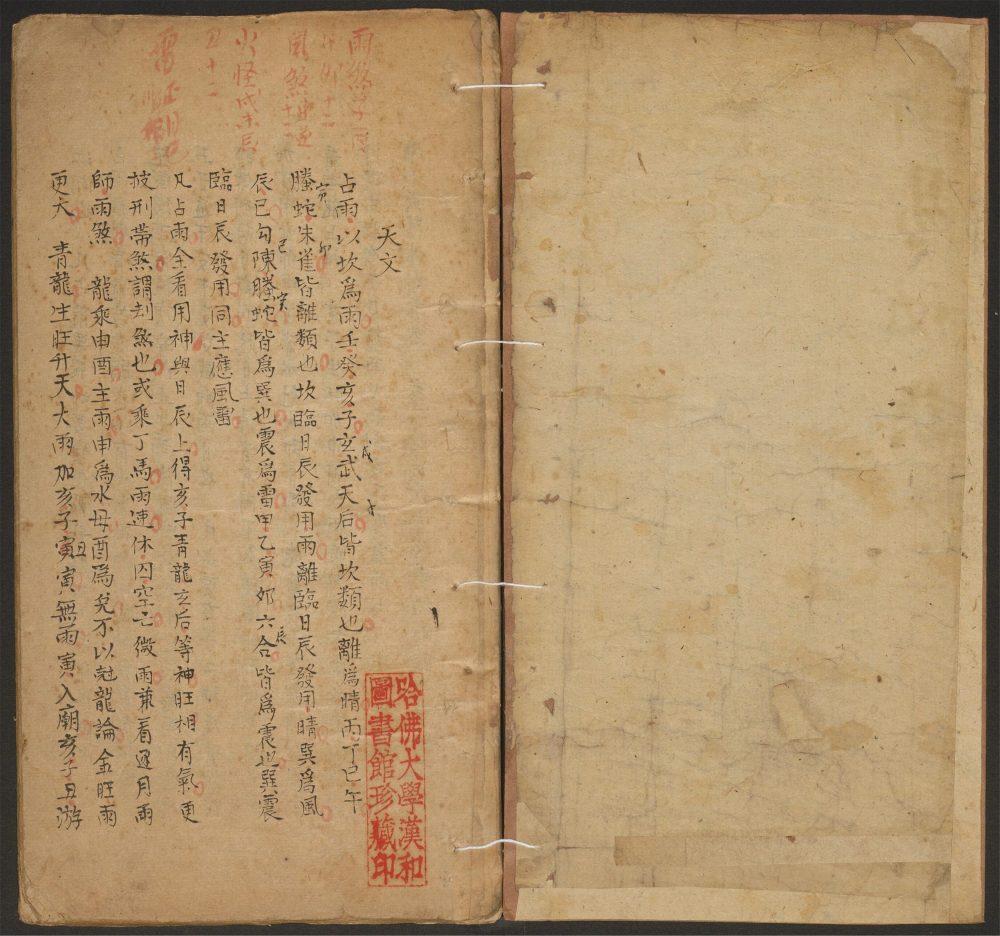 天文
占雨以坎爲雨壬癸亥子玄武天后皆坎類也離爲晴丙丁巳午
螣蛇朱雀皆離類也坎臨日辰發用雨離臨日辰發用晴巽爲風
辰巳勾陳螣蛇皆爲巽也震爲雷甲乙寅卯六合皆爲震也巽震
臨日辰發用同主應風雷
凡占雨全看用神與日辰上得亥子青龍玄后等神旺相有氣更
披刑帶煞謂刦煞也或乘丁馬雨速休囚空亡微雨兼看逐月雨
師雨煞 龍乘申酉主雨申爲水母酉爲兌不以尅龍論金旺雨
更大 青龍生旺升天大雨加亥子寅寅無雨寅入廟亥子丑游
戌
子
寅
卯
巳
寅
辰
丑
雨煞子
十二
風煞
十二
火怪戌未辰
丑十二
哈佛大學漢和
圖書館珍藏印